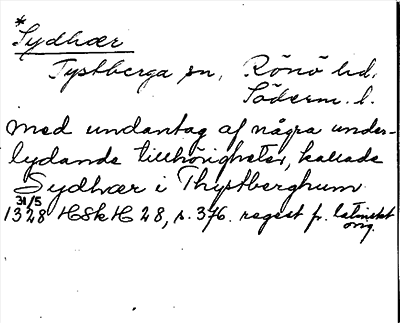 *
Sydhær
Tystberga sn, Rönö hd.
Söderm. l.
med undantag af några under-
lydande tillhörigheter, kallade
Sydhær i Thystberghum
31/5
1328 HSk H 28, s. 376. regest fr. latinskt
orig.